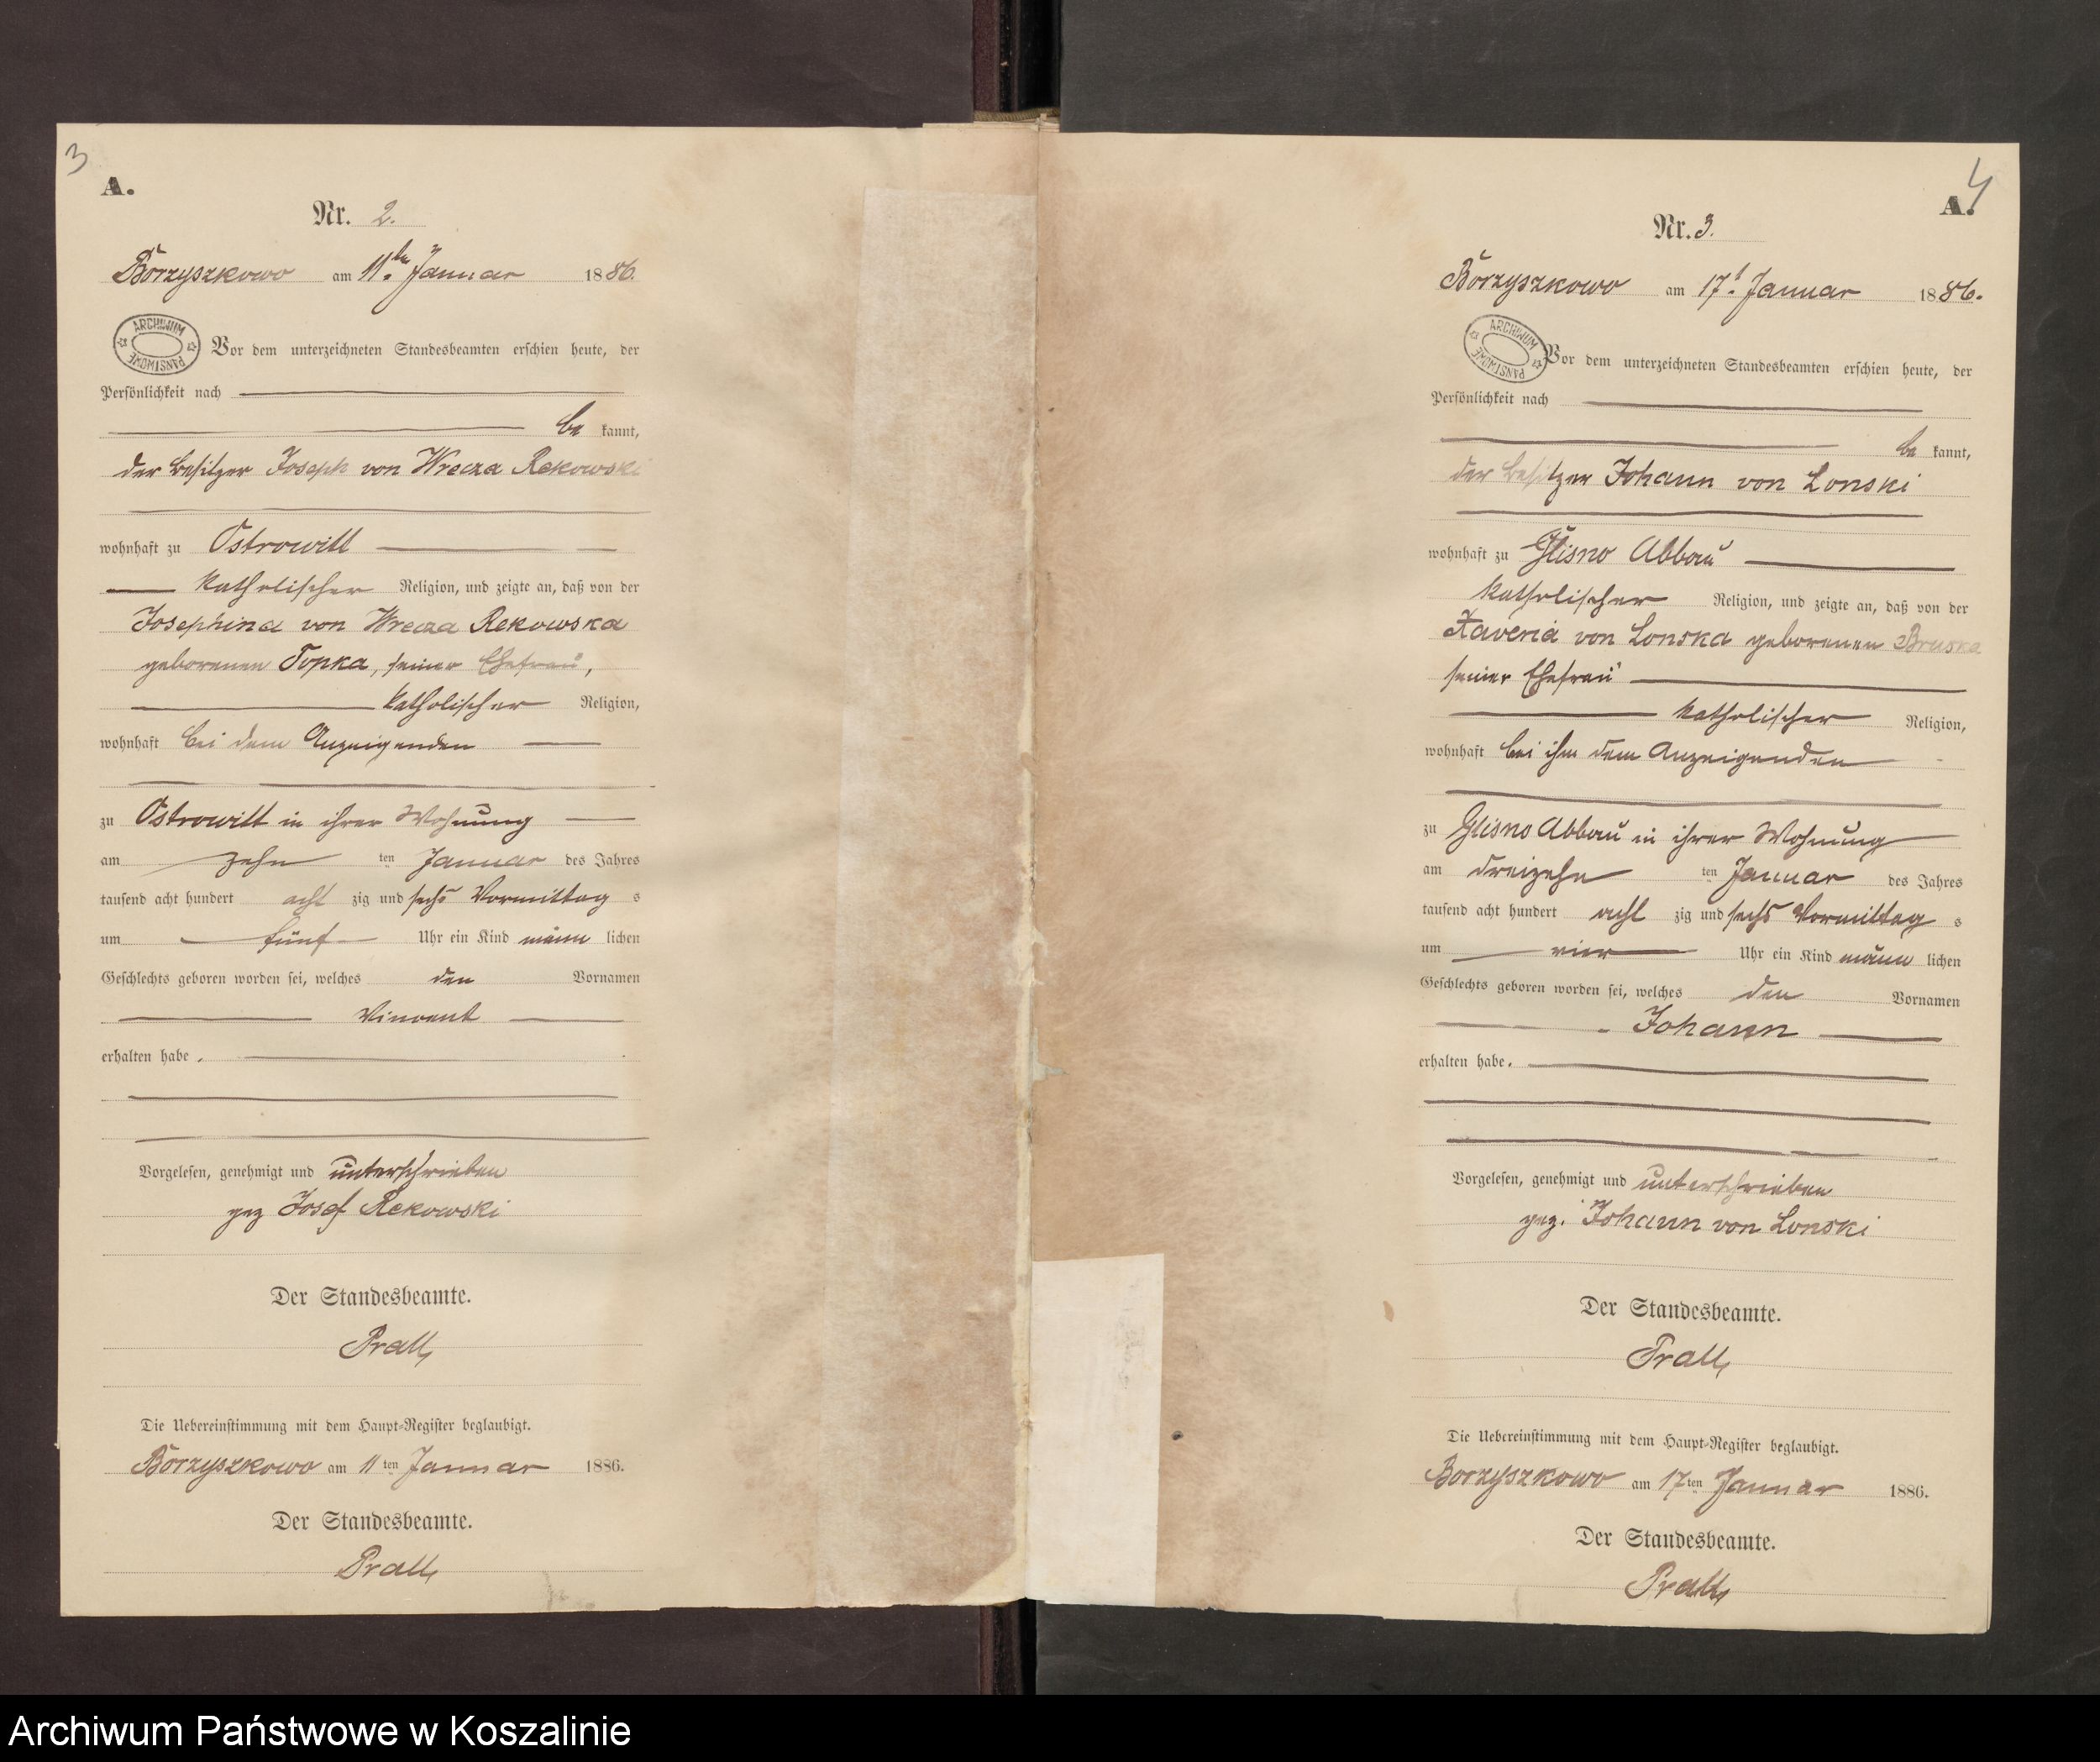 3
A.
Nr. 2.
Borzyszkowo am 11ten Januar 1886.
ARCHIWUM PAŃSTWOWE
Vor dem unterzeichneten Standesbeamten erschien heute, der
Persönlichkeit nach
be kannt,
der Besitzer Joseph von Wrecza Rekowski
wohnhaft zu Ostrowitt
katholischer Religion, und zeigte an, daß von der
Josephina von Wrecza Rekowska
geborenen Topka, seiner Ehefrau,
katholischer Religion,
wohnhaft bei dem Anzeigenden
zu Ostrowitt in ihrer Wohnung
am zehn ten Januar des Jahres
tausend acht hundert acht zig und sechs Vormittag s
um fünf Uhr ein Kind männ lichen
Geschlechts geboren worden sei, welches den Vornamen
Vincent
erhalten habe.
Vorgelesen, genehmigt und unterschrieben
gez Josef Rekowski
Der Standesbeamte.
Prall
Die Uebereinstimmung mit dem Haupt-Register beglaubigt.
Borzyszkowo am 11ten Januar 1886.
Der Standesbeamte.
Prall
4
A.
Nr. 3.
Borzyszkowo am 17t Januar 1886.
ARCHIWUM PAŃSTWOWE
Vor dem unterzeichneten Standesbeamten erschien heute, der
Persönlichkeit nach
be kannt,
der Besitzer Johann von Lonski
wohnhaft zu Glisno Abbau
katholischer Religion, und zeigte an, daß von der
Xaveria von Lonska geborenen Bruska
seiner Ehefrau
katholischer Religion,
wohnhaft bei ihm dem Anzeigenden
zu Glisno Abbau in ihrer Wohnung
am dreizehn ten Januar des Jahres
tausend acht hundert acht zig und sechs Vormittag s
um vier Uhr ein Kind männ lichen
Geschlechts geboren worden sei, welches den Vornamen
Johann
erhalten habe.
Vorgelesen, genehmigt und unterschrieben
gez. Johann von Lonski
Der Standesbeamte.
Prall
Die Uebereinstimmung mit dem Haupt-Register beglaubigt.
Borzyszkowo am 17ten Januar 1886.
Der Standesbeamte.
Prall
Archiwum Państwowe w Koszalinie